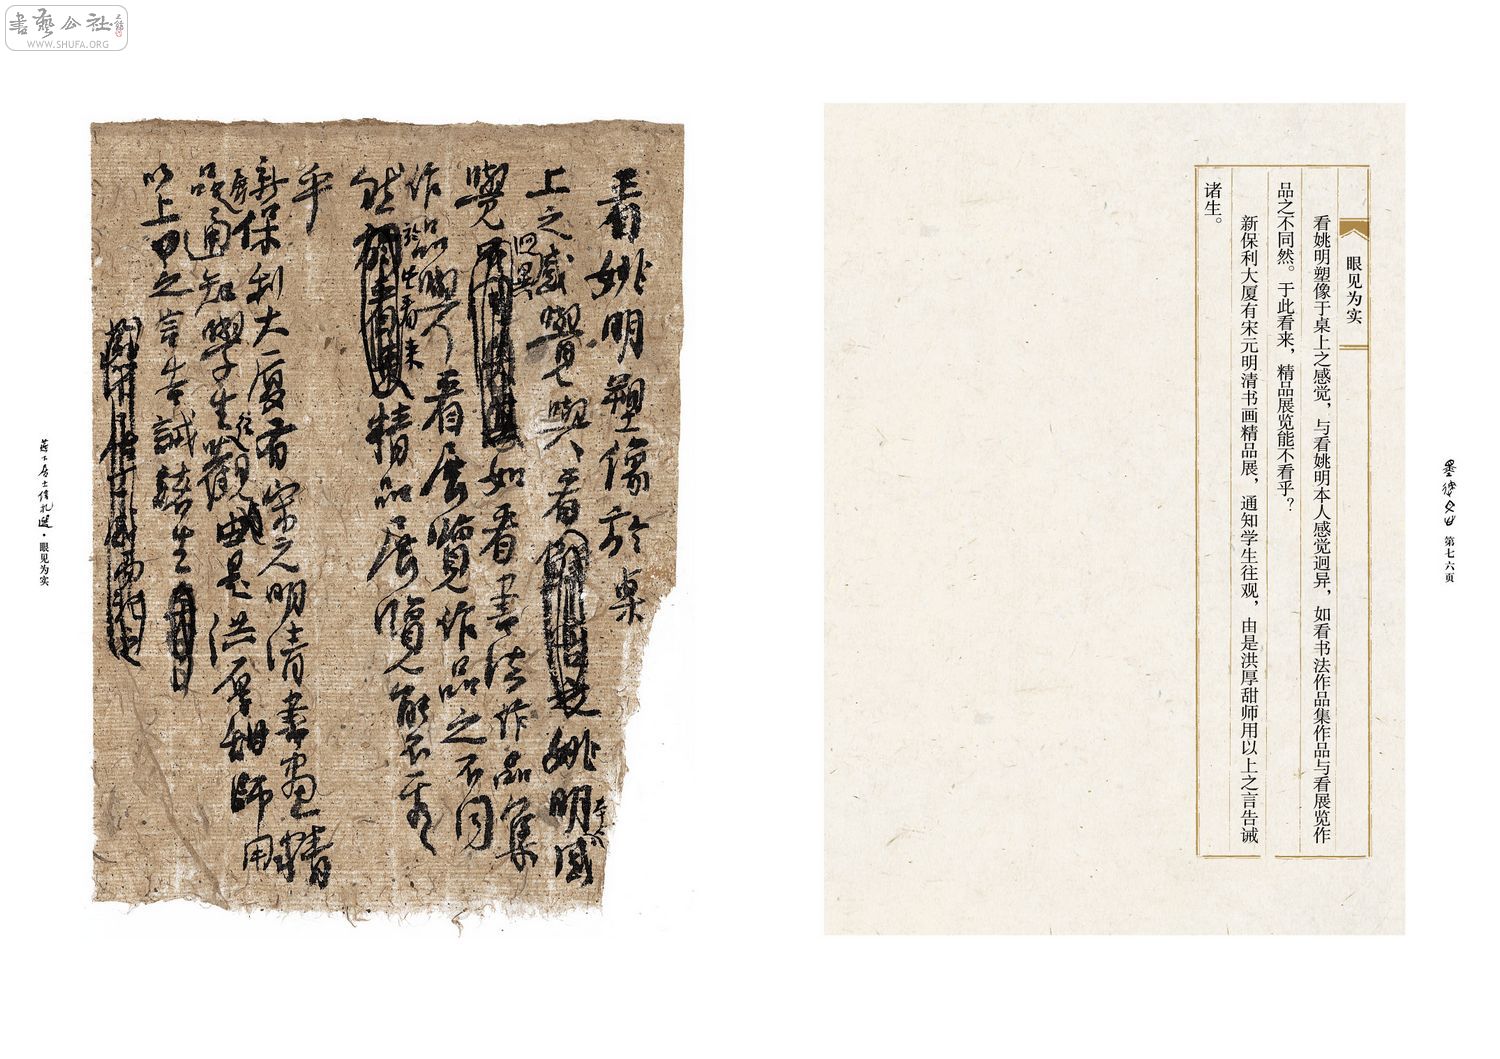 書藝公社
WWW.SHUFA.ORG
第七六页
眼见为实
看姚明塑像于桌上之感觉，与看姚明本人感觉迥异，如看书法作品集作品与看展览作
品之不同然。于此看来，精品展览能不看乎？
新保利大厦有宋元明清书画精品展，通知学生往观，由是洪厚甜师用以上之言告诫
诸生。
看姚明塑像於桌
上之感覺與看
姚明本人感
覺迥異
如看書法作品集
作品與看展覽作品之不同
然於此看来
精品展覽能不看
乎
新保利大厦有宋元明清書畫精
品展通知學生往觀由是洪厚甜師用
以上之言告誡諸生
居士信札選·眼见为实